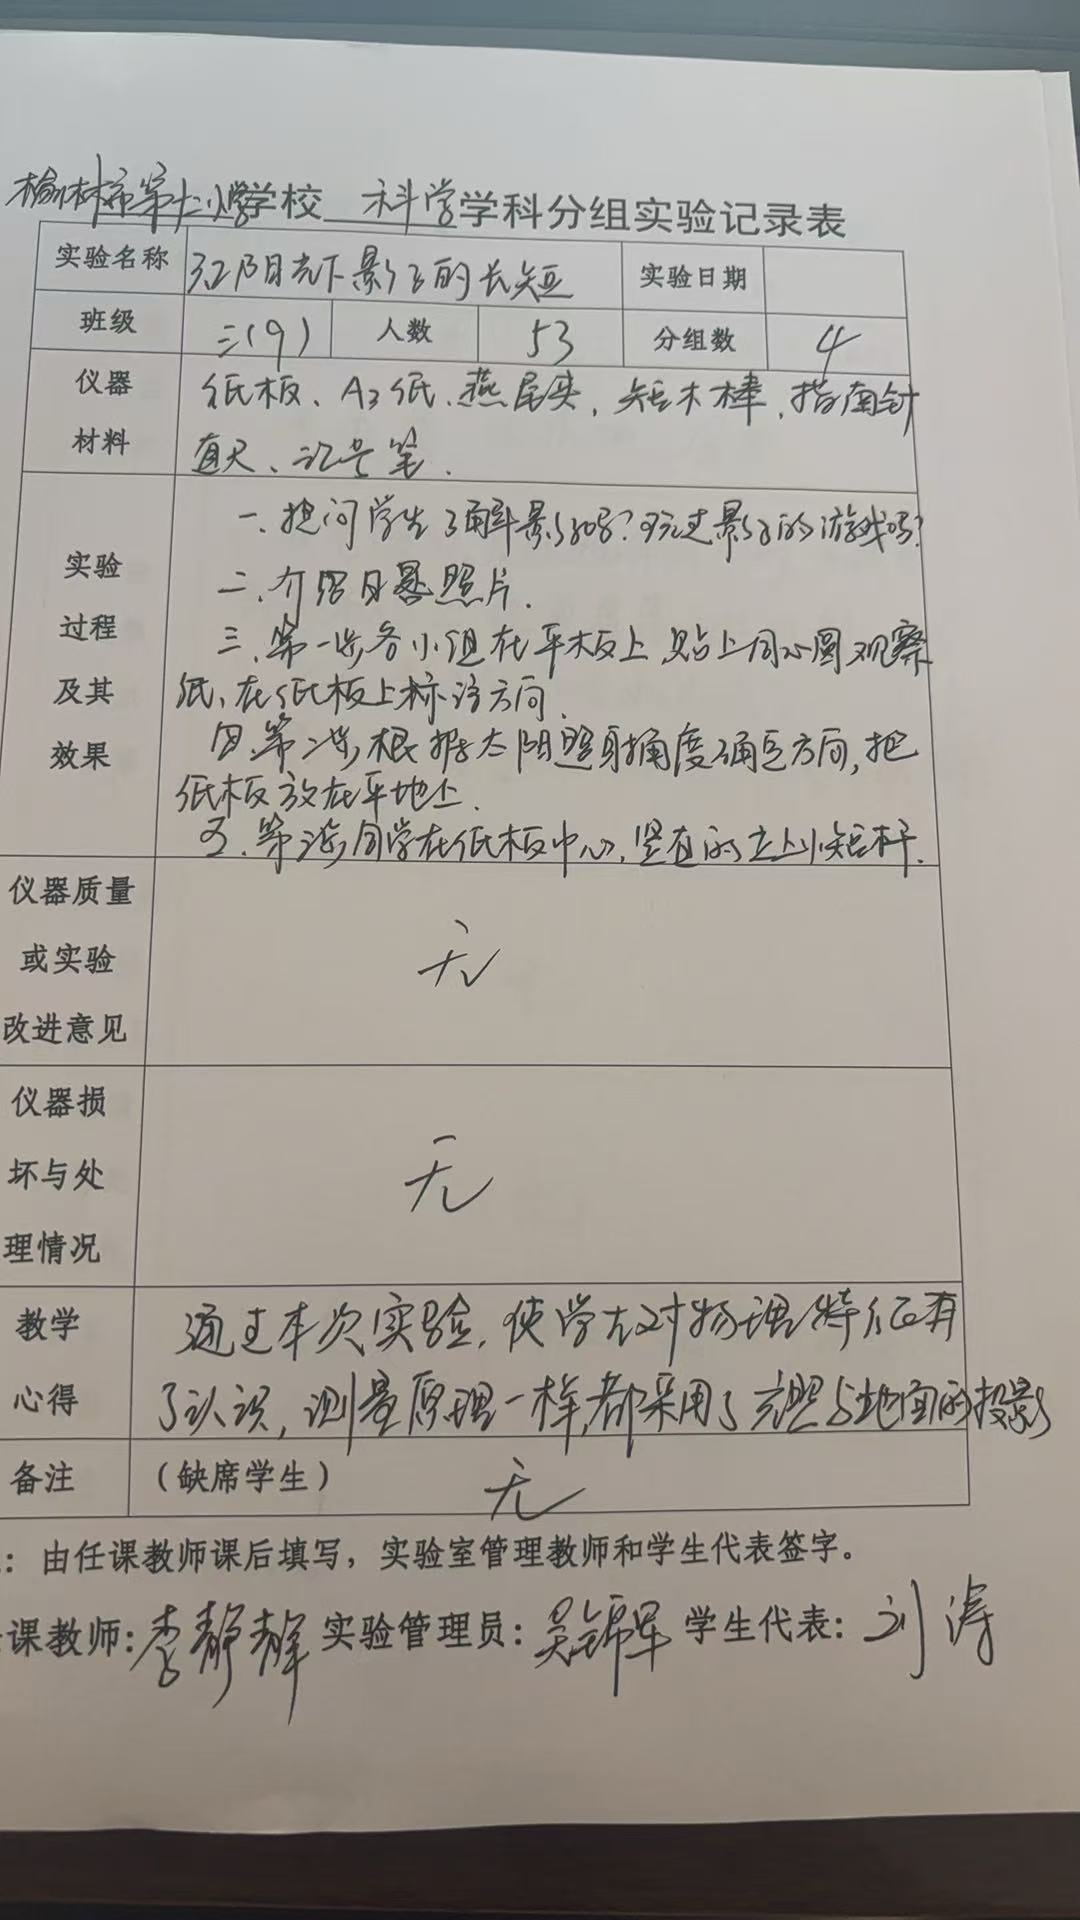 榆林市第十二小学学校 科学学科分组实验记录表
实验名称 阳光下影子的长短 实验日期
班级 三(9) 人数 53 分组数 4
仪器材料 纸板、A3纸、燕尾夹、短木棒、指南针
直尺、记号笔.
实验过程及其效果
一、提问学生了解影子吗?玩过影子的游戏吗?
二、介绍日晷照片.
三、第一步各小组在平板上贴上同心圆观察
纸、在纸板上标注方向.
四、第二步,根据太阳照射角度确定方向,把
纸板放在平地上.
五、第三步,同学在纸板中心,竖直的立上小短杆.
仪器质量或实验改进意见 无
仪器损坏与处理情况 无
教学心得 通过本次实验,使学生对物理特征有
了认识,测量原理一样,都采用了光照与地面的投影
备注 (缺席学生) 无
: 由任课教师课后填写,实验室管理教师和学生代表签字。
课教师: 李静 实验管理员: 吴锦军 学生代表: 刘涛